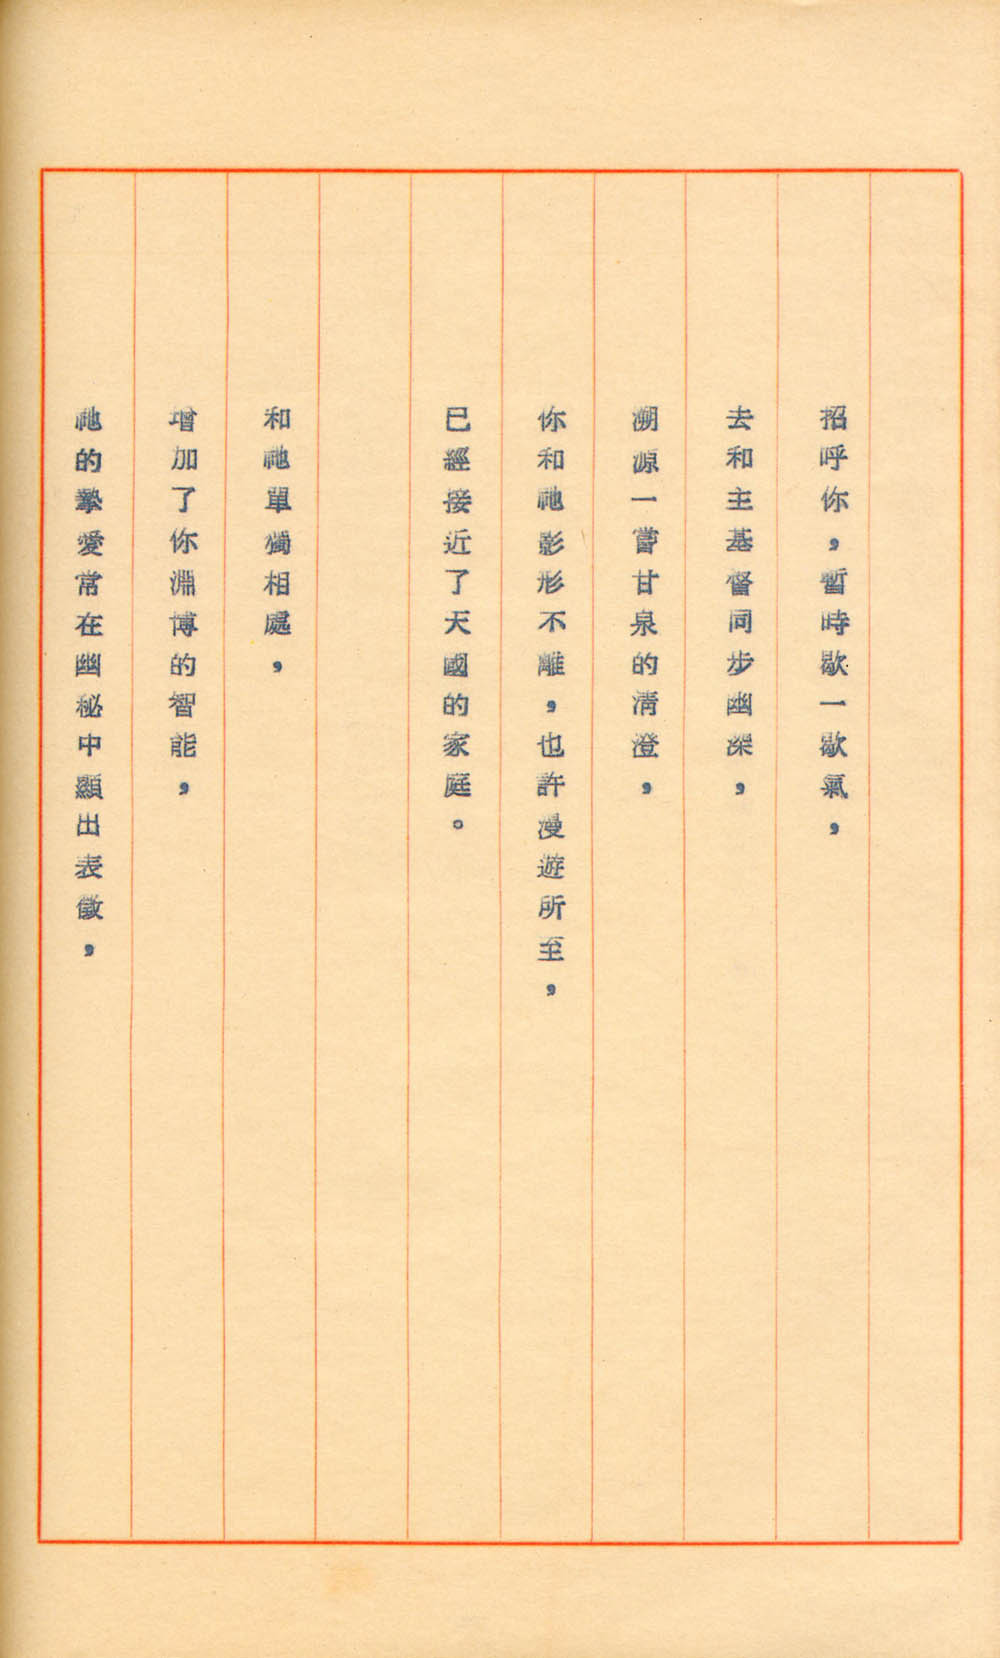 招呼你，暫時歇一歇氣，
去和主基督同步幽深，
溯源一嘗甘泉的清澄，
你和祂影形不離，也許漫遊所至，
已經接近了天國的家庭。
和祂單獨相處，
增加了你淵博的智能，
祂的摯愛常在幽秘中顯出表徵，